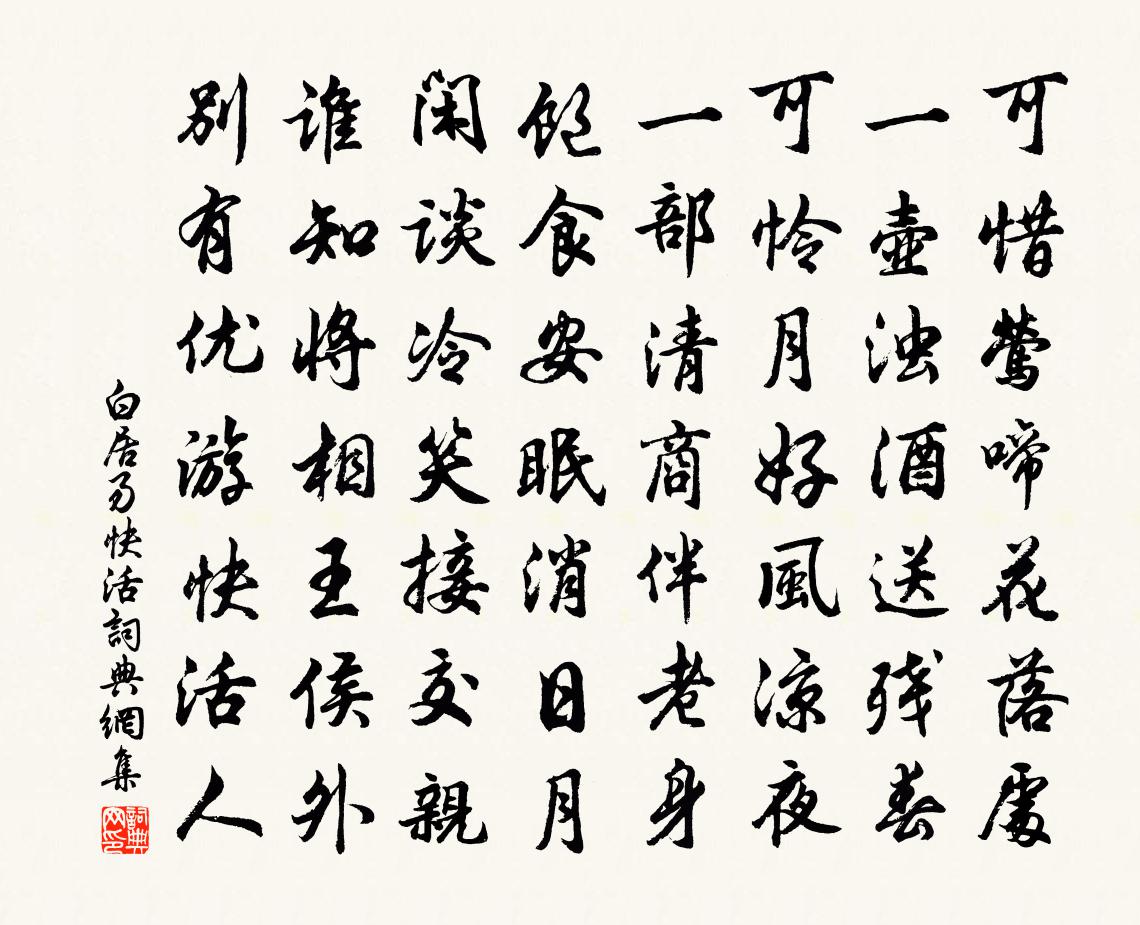 可惜鶯啼花落處
一壺浊酒送残春
可怜月好風凉夜
一部清商伴老身
飽食安眠消日月
闲談冷笑接交親
誰知将相王侯外
别有优游快活人
白居易快活詞典網集
詞典网印